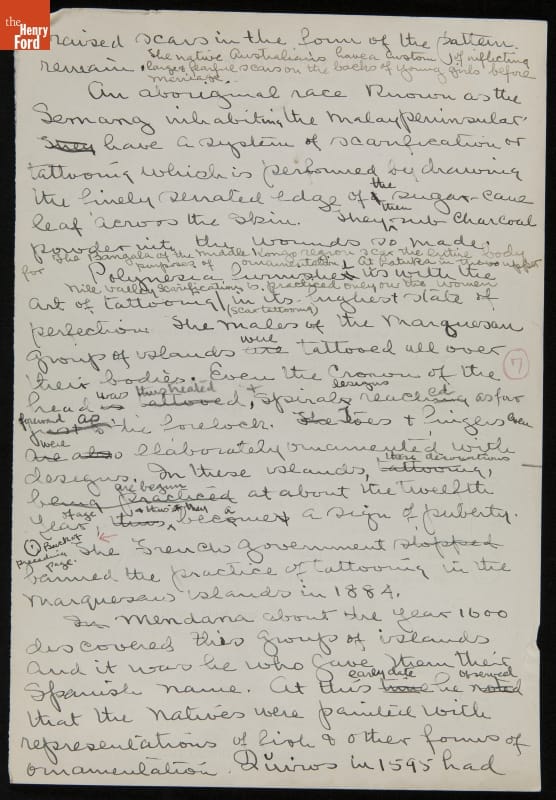 the
Henry
Ford
raised scars in the form of the pattern
remain. The native Australians have a custom of inflicting
large & fearful scars on the backs of young girls before
marriage.
An aboriginal race known as the
Semang inhabiting the Malay peninsular
they have a system of scarification or
tattooing which is performed by drawing
the finely serrated edge of the sugar-cane
leaf across the skin. They then rub charcoal
powder into the wounds so made.
The Bangala of the middle Kongo region scar the entire body
for purposes of ornamentation. At in the upper
Polynesia furnishes its with the
Nile valley scarification is practiced only on the women
art of tattooing in its highest state of
(scar tattooing)
perfection. The males of the Marquesan
group of islands were are tattooed all over
their bodies. Even the crown of the
7
head was is thus treated attooed, & spiral designs reached as far
forward as the forelock. The Toes & fingers even
were are also elaborately ornamented with
designs. In these islands, these decorations tattooing,
are begun being practiced at about the twelfth
year of age, & thus they thus become a sign of puberty.
① Back of
preceding
page.
The French Government stopped
banned the practice of tattooing in the
Marquesans islands in 1884.
In Mendana about the year 1600
discovered this group of islands
and it was he who gave them their
Spanish name. At this early date time he observed noted
that the natives were painted with
representations of fish & other forms of
ornamentation. Quiros in 1595 had